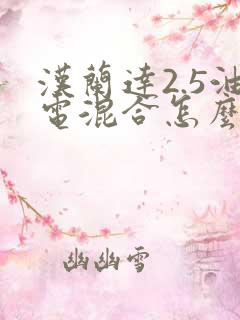 漢蘭達2.5油
電混合怎麼
幽幽雪